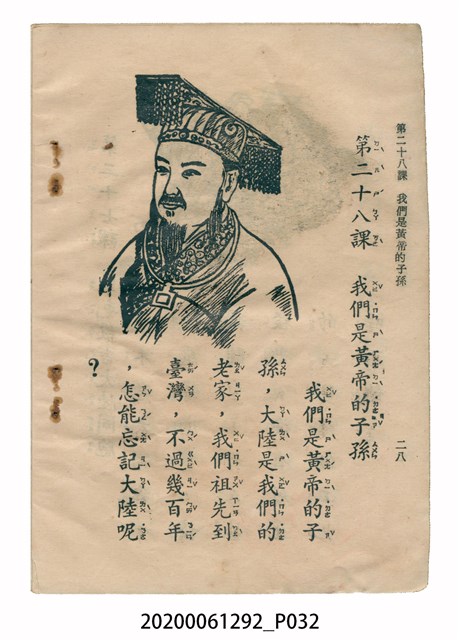 第二十八課　我們是黃帝的子孫
二八
第二十八課　我們是黃帝的子孫
我們是黃帝的子
孫，大陸是我們的
老家，我們祖先到
臺灣，不過幾百年
，怎能忘記大陸呢
？
20200061292_P032